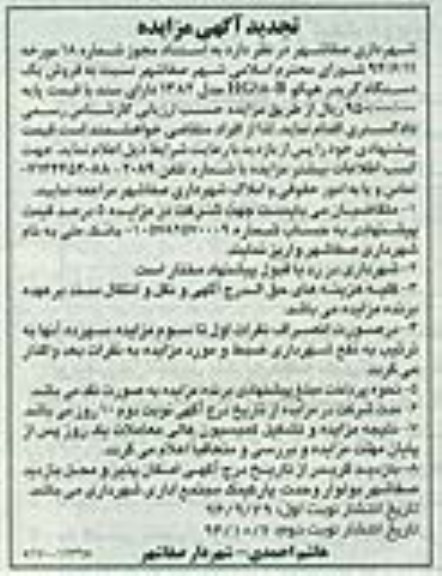 تجدید آگهی مزایده
شهرداری صفاشهر در نظر دارد به استناد مجوز شماره ۱۸ مورخه
شورای محترم اسلامی شهر صفاشهر نسبت به فروش یک
دستگاه گریدر هپکو مدل ۱۳۸۲ دارای سند با قیمت پایه
ریال از طریق مزایده حسب ارزیابی کارشناس رسمی
دادگستری اقدام نماید. لذا از افراد متقاضی خواهشمند است قیمت
پیشنهادی خود را پس از بازدید با رعایت شرایط ذیل اعلام نمایند. جهت
کسب اطلاعات بیشتر مزایده با شماره تلفن
تماس و یا به امور حقوقی و املاک شهرداری صفاشهر مراجعه نمایید.
۱- متقاضیان می بایست جهت شرکت در مزایده ۵ درصد قیمت
پیشنهادی به حساب شماره بانک ملی به نام
شهرداری صفاشهر واریز نمایند.
۲- شهرداری در رد یا قبول پیشنهاد مختار است
۳- کلیه هزینه های حق الدرج آگهی و نقل و انتقال سند بر عهده
برنده مزایده می باشد.
۴- در صورت انصراف نفرات اول تا سوم مزایده سپرده آنها به
ترتیب به نفع شهرداری ضبط و مورد مزایده به نفرات بعد واگذار
می گردد.
۵- نحوه پرداخت مبلغ پیشنهادی برنده مزایده به صورت نقد می باشد.
۶- مدت شرکت در مزایده از تاریخ درج آگهی نوبت دوم ۱۰ روز می باشد
۷- نتیجه مزایده و تشکیل کمیسیون عالی معاملات یک روز پس از
پایان مهلت مزایده و بررسی و متعاقبا اعلام می گردد.
۸- بازدید گریدر از تاریخ درج آگهی امکان پذیر و محل بازدید
صفاشهر بولوار وحدت، پارکینگ مجتمع اداری شهرداری می باشد.
تاریخ انتشار نوبت اول: ۹۴/۹/۲۹
تاریخ انتشار نوبت دوم: ۹۴/۱۰/۷
هاشم احمدی - شهردار صفاشهر